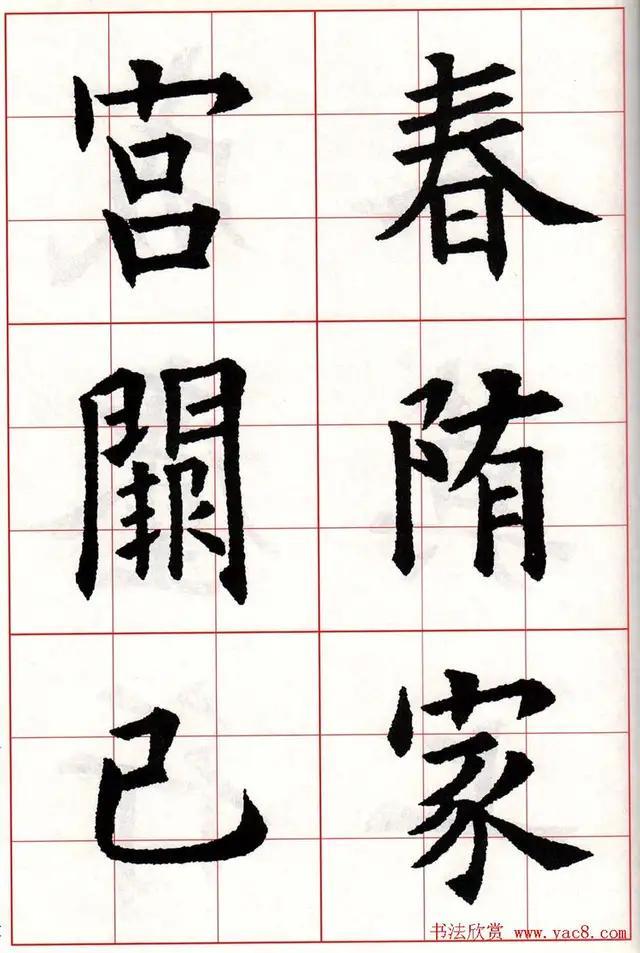 春陏家
宮闕已
书法欣赏 www.yac8.com